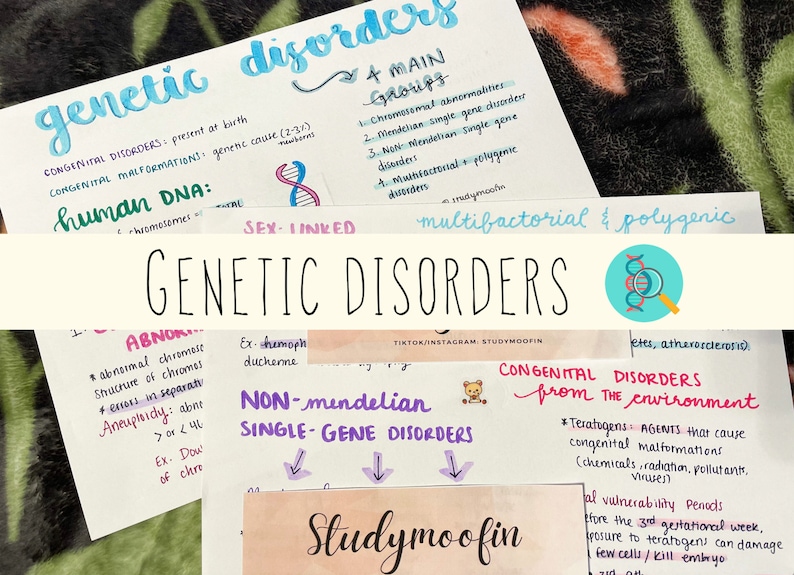 genetic disorders
4 MAIN
groups
1. Chromosomal abnormalities
2. Mendelian Single gene disorders
3. Non-Mendelian Single gene
disorders
4. Multifactorial + polygenic
disorders
@studymoofin
CONGENITAL DISORDERS: present at birth
CONGENITAL MALFORMATIONS: genetic cause (2-3%)
newborns
human DNA:
chromosomes = TOTAL
SEX-LINKED
multifactorial & polygenic
GENETIC DISORDERS
ABNORM
* abnormal chromoso
Structure of chromos
* errors in separati
Aneuploidy: abno
> or < 46
Ex. Dow
of chro
Ex. hemoph
duchenne
TIKTOK/INSTAGRAM: STUDYMOOFIN
etes, atherosclerosis)
NON-mendelian
SINGLE-GENE DISORDERS
CONGENITAL DISORDERS
from THE environment
*Teratogens: AGENTS that cause
congenital malformations
(chemicals, radiation, pollutants,
viruses)
al vulnerability Periods
efore the 3rd gestational week,
xposure to teratogens can damage
few cells / kill embryo
Studymoofin